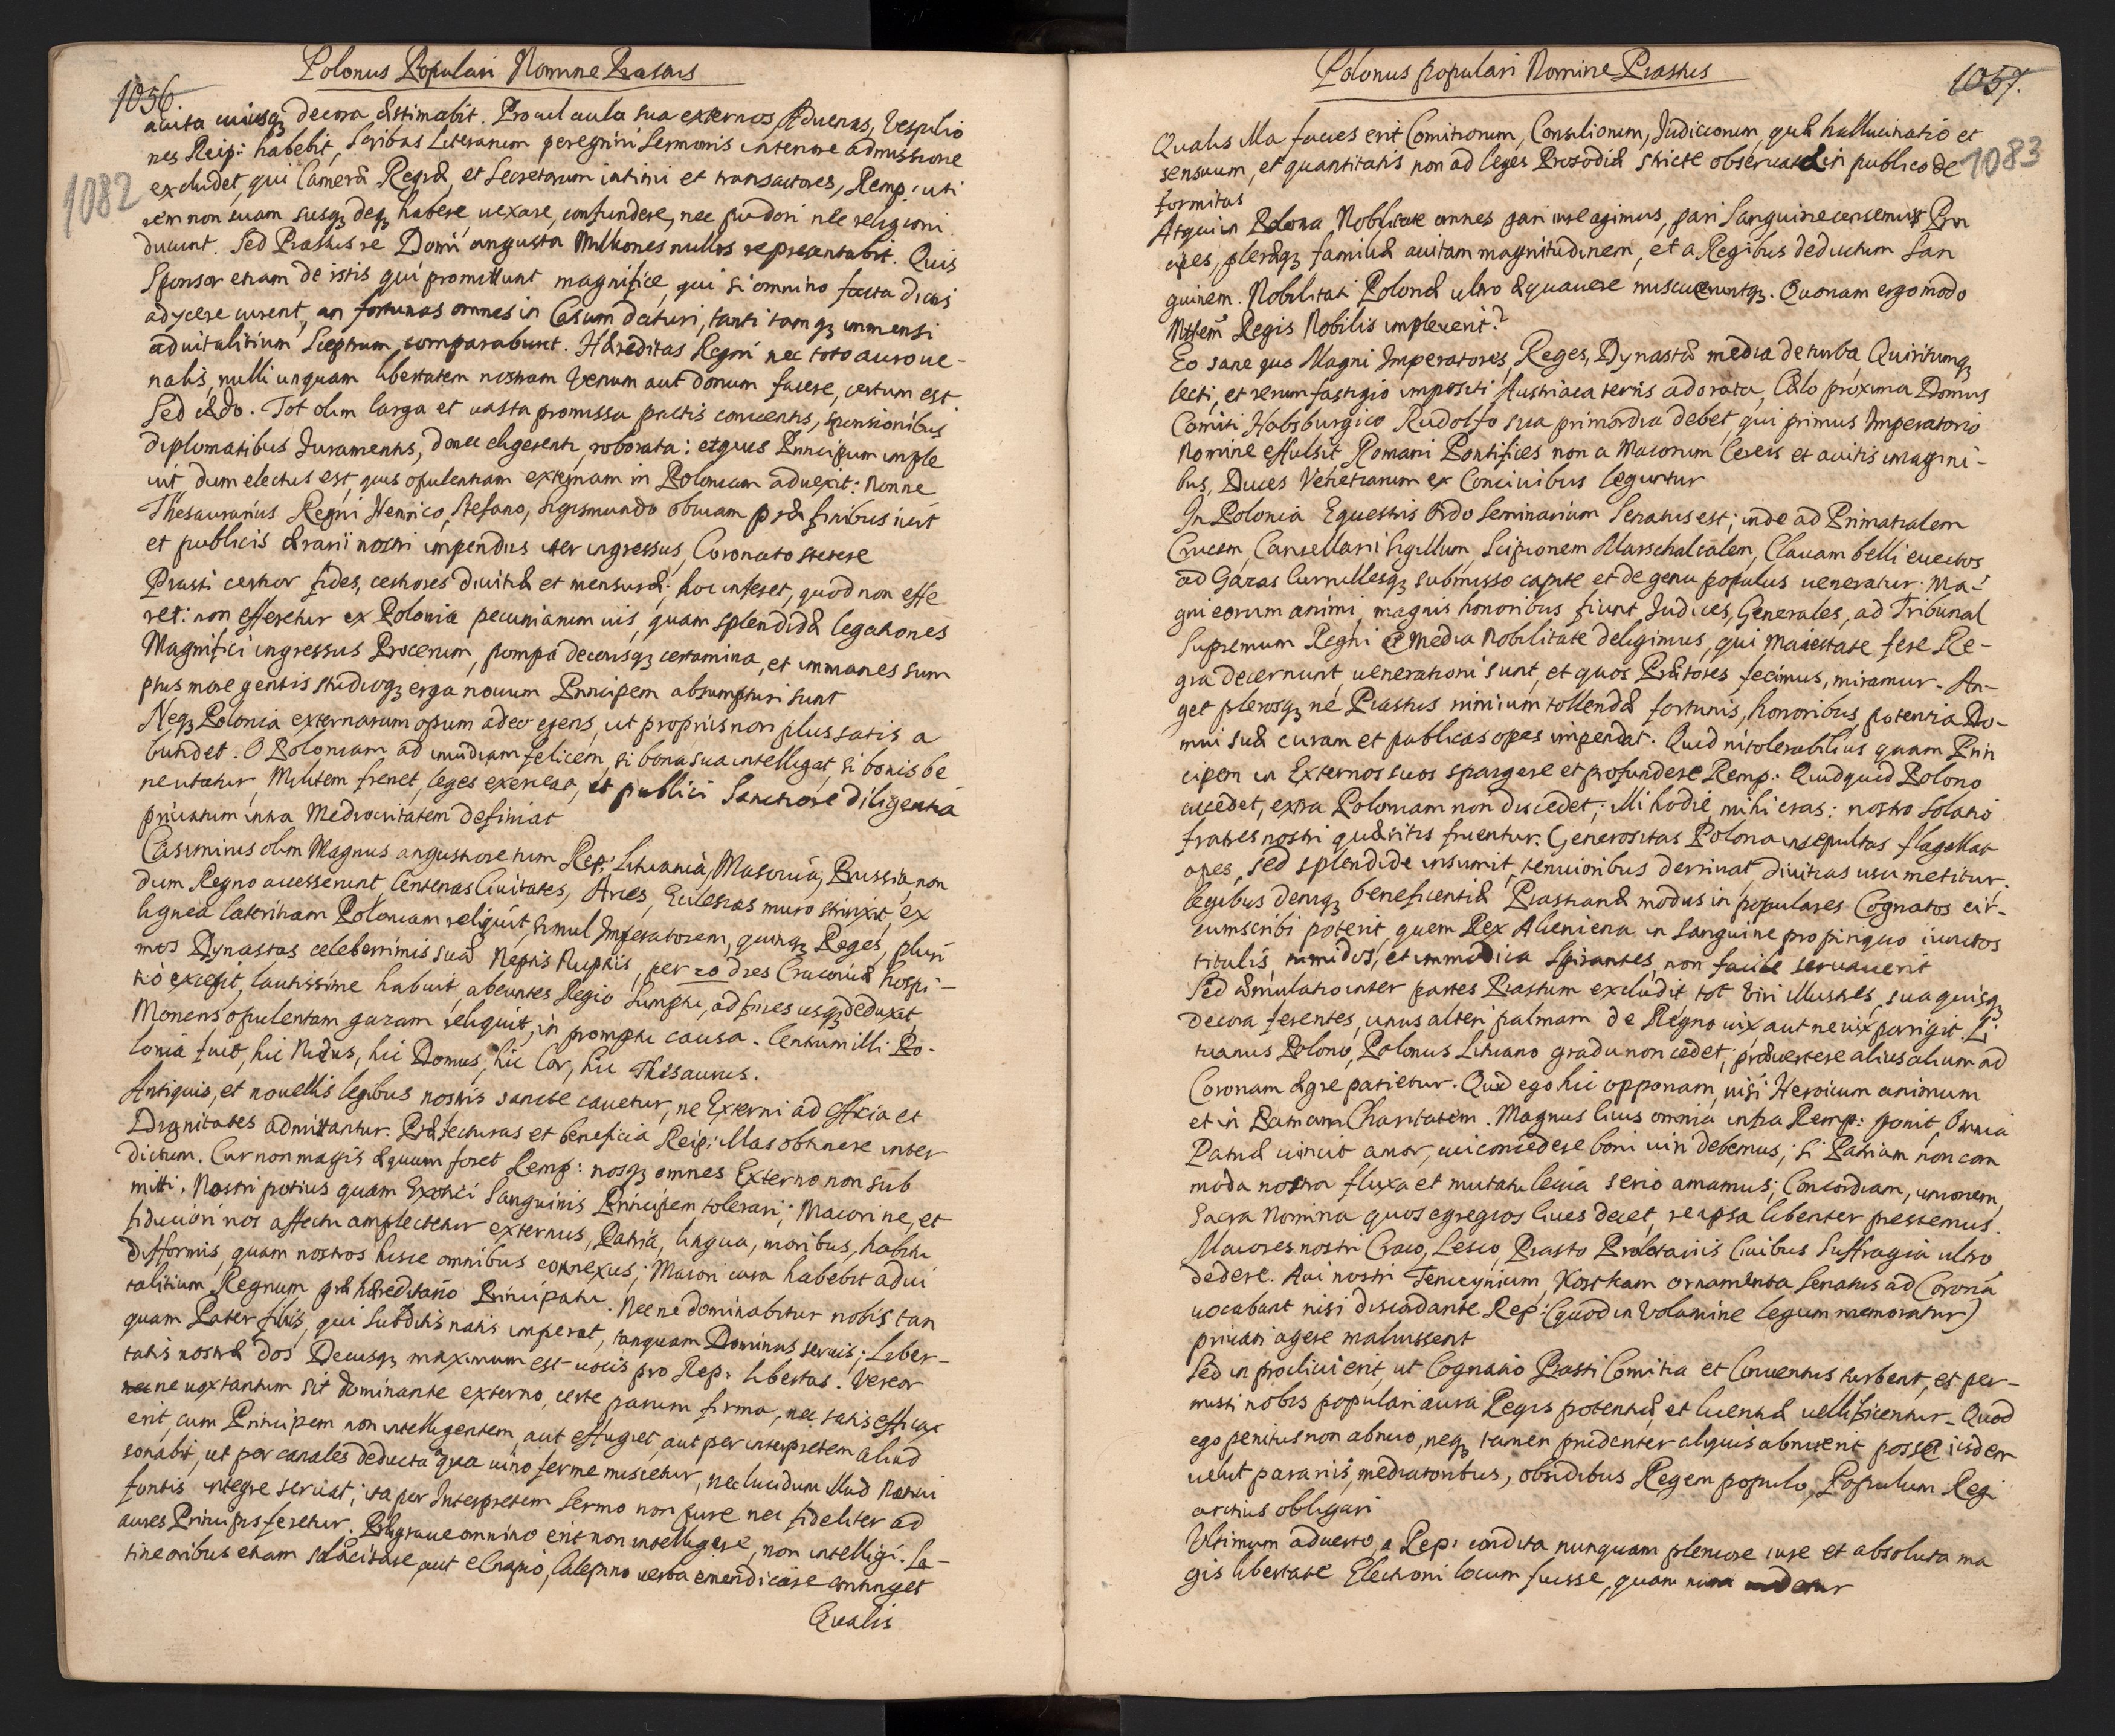 Polonus Populari Nomine Prastus
1056.
1082
auita cuiusq; decora æstimabit. Procul aula sua externos Aduenas, Vespilio
nes Reip: habebit, Scribas Literarum peregrini Sermonis interiore admissione
excludet, qui Cameræ Regiæ, et Secretorum intimi et transactores, Remp: uti
rem non suam susq; deq; habere, uexare, confundere, nec pudori nec religioni
ducunt. Sed Prastus re Domi angusta Milliones nullos repræsentabit. Quis
Sponsor etiam de istis qui promittunt magnifice, qui si omnino facta dictis
adijcere curent, an fortunas omnes in Casum daturi, tanti tamq; immensi
aduitalitium Sceptrum comparabunt. Hæreditas Regni nec toto auro ue-
nalis, nulli unquam libertatem nostram Venum aut donum facere, certum est
Sed cædo. Tot olim larga et uasta promissa pactis conuentis, sponsionibus
diplomatibus Iuramentis, donec eligerentur, roborata: et quis Principum imple
uit dum electus est, quis opulentiam externam in Poloniam aduexit: Nonne
Thesaurarius Regni Henrico, Stefano, Sigismundo obuiam præ finibus iuit
et publicis ærarii nostri impendiis iter ingressus, Coronato stetere
Prasti certior fides, certiores diuitiæ et mensuræ: hoc inferet, quod non effe
ret: non efferetur ex Polonia pecuniarum uis, quam splendidæ legationes
Magnifici ingressus Procerum, pompa decorisq; certamina, et immanes sum
ptus more gentis studioq; erga nouum Principem absumpturi sunt
Neq; Polonia externarum opum adeo egens, ut propriis non plus satis a
bundet. O Poloniam ad inuidiam felicem, si bona sua intelligat, si bonis be
ne utatur, Militem frenet, leges exerceat, et publici Sanctiore diligentiâ
priuatum intra Mediocritatem definiat
Casimirus olim Magnus angustiore tum Rep: Lituania, Masouia, Prussia, non
dum Regno accesserunt, Centenas Ciuitates, Arces, Ecclesias muro strinxit, ex
lignea lateritiam Poloniam reliquit, simul Imperatorem, quinq; Reges, pluri
mos Dynastas celeberrimis suæ Neptis Nuptiis, per 20 dies Cracouiæ hospi-
tio excepit, lautissime habuit, abeuntes Regio Sumptu, ad fines usq; deduxit,
Moriens opulentam gazam reliquit, in promptu causa. Centrum illi Po-
lonia fuit, hic Nidus, hic Domus, hic Cor, hic Thesaurus.
Antiquis, et nouellis legibus nostris sancte cauetur, ne Externi ad Officia et
Dignitates admittantur. Præfecturas et beneficia Reip: illas obtinere inter
dictum. Cur non magis æquum foret Remp: nosq; omnes Externo non sub
mitti. Nostri potius quam Exotici Sanguinis Principem tolerari; Maiori ne, et
fiduciori nos affectu amplectetur externus, Patria, lingua, moribus, habitu
difformis, quam nostros hisce omnibus connexus; Maiori cura habebit adui
talitium Regnum præ hæreditario Principatu. Necne dominabitur nobis tan
quam Pater filiis, qui Subditis natis imperat, tanquam Dominus seruis; Liber-
tatis nostræ dos Decusq; maximum est uocis pro Rep: libertas. Vereor
ne uox tantum sit dominante externo, certe parum firma, nec satis efficax
erit, cum Principem non intelligentem, aut effugiet, aut per interpretem aliud
sonabit, ut per canales deducta aqua uino ferme miscetur, nec lucidum illud Natiui
fontis integre seruat; ita per Interpretem Sermo non pure nec fideliter ad
aures Principis feretur. Pergraue omnino erit non intelligere, non intelligi. La-
tine oribus etiam placitare, aut e Cnapio, Calepino uerba emendicare continget
Qualis
Polonus populari Nomine Prastus
1057.
1083
Qualis illa facies erit Comitiorum, Consiliorum, Judiciorum, quæ hallucinatio et
sensuum, et quantitatis non ad leges Prosodiæ stricte obseruatæ in publico de
formitas
Atqui in Polona Nobilitate omnes pari iure agimus, pari Sanguine censemur Prin
cipes, pleræq; familiæ auitam magnitudinem, et a Regibus deductum San
guinem. Nobilitati Polonæ ultro æquauere miscueruntq;. Quonam ergo modo
Mttem Regis Nobilis impleuerit?
Eo sane quo Magni Imperatores, Reges, Dynastæ media de turba Quiritumq;
lecti, et rerum fastigio impositi Austriaca terris adorata, Cælo proxima Domus
Comiti Habsburgico Rudolfo sua primordia debet, qui primus Imperatorio
Nomine effulsit, Romani Pontifices non a Maiorum Ceris et auitis imagini-
bus, Duces Venetiarum ex Conciuibus leguntur
In Polonia Equestris Ordo Seminarium Senatus est; inde ad Primatialem
Crucem, Cancellarii Sigillum, Scipionem Marschalcalem, Clauam belli euectos
ad Gazas Currullesq; submisso capite et de genu populus ueneratur. Ma-
gni eorum animi, magnis honoribus fiunt Judices, Generales, ad Tribunal
Supremum Regni e Media Nobilitate deligimus, qui Maiestate fere Re-
gia decernunt, uenerationi sunt, et quos Prætores fecimus, miramur. An-
get plerosq; ne Prastus nimium tollendæ fortunis, honoribus, potentia Do-
mui suæ curam et publicas opes impendat. Quid intolerabilius quam Prin
cipem in Externos suos spargere et profundere Remp: Quidquid Polono
accedet, extra Poloniam non discedet; illi hodie, mihi cras: nostro Solatio
fratres nostri quæsitis fruentur. Generositas Polona insepultas flagellat
opes, sed splendide insumit, tenuioribus deriuat, diuitias usu metitur.
legibus deniq; beneficentiæ Prastianæ modus in populares Cognatos cir-
cumscribi poterit, quem Rex Alieniena in Sanguine propinquo iunctos
titulis tumidos, et immodica Spirantes, non facile seruauerit
Sed æmulatio inter partes Prastum excludit tot Viri illustres, sua quisq;
decora ferentes, unus alteri palmam de Regno uix aut ne uix porrigit. Li
tuanus Polono, Polonus Lituano gradu non cedet; præuertere alius alium ad
Coronam ægre patietur. Quid ego hic opponam, nisi Heroicum animum
et in Patriam Charitatem. Magnus Ciuis omnia infra Remp: ponit, Omnia
Patriæ uincit amor, cui concedere boni uiri debemus; Si Patriam non com
moda nostra fluxa et mutatu leuia serio amamus; Concordiam, unionem,
Sacra Nomina quos egregios Ciues decet, re ipsa libenter prestemus.
Maiores nostri Craco, Lesco, Prasto Proletariis Ciuibus Suffragia ultro
dedere. Aui nostri Tenczynium, Kostkam ornamenta Senatus ad Coronã
uocabant nisi discordante Rep: (quod in Volumine legum memoratur)
priuati agere maluissent
Sed in procliui erit, ut Cognatio Prasti Comitia et Conuentus turbent, et per-
misti nobis populari aura Regis potentiæ et licentiæ uellificentur. Quod
ego penitus non abnuo, neq; tamen prudenter aliquis abnuerit posse iisdem
uelut parariis, mediatoribus, obsidibus Regem populo, Populum Regi
arctius obligari
Ultimum aduerto, a Rep: condita nunquam pleniore iure et absoluta ma
gis libertate Electioni locum fuisse, quam nunc uidetur